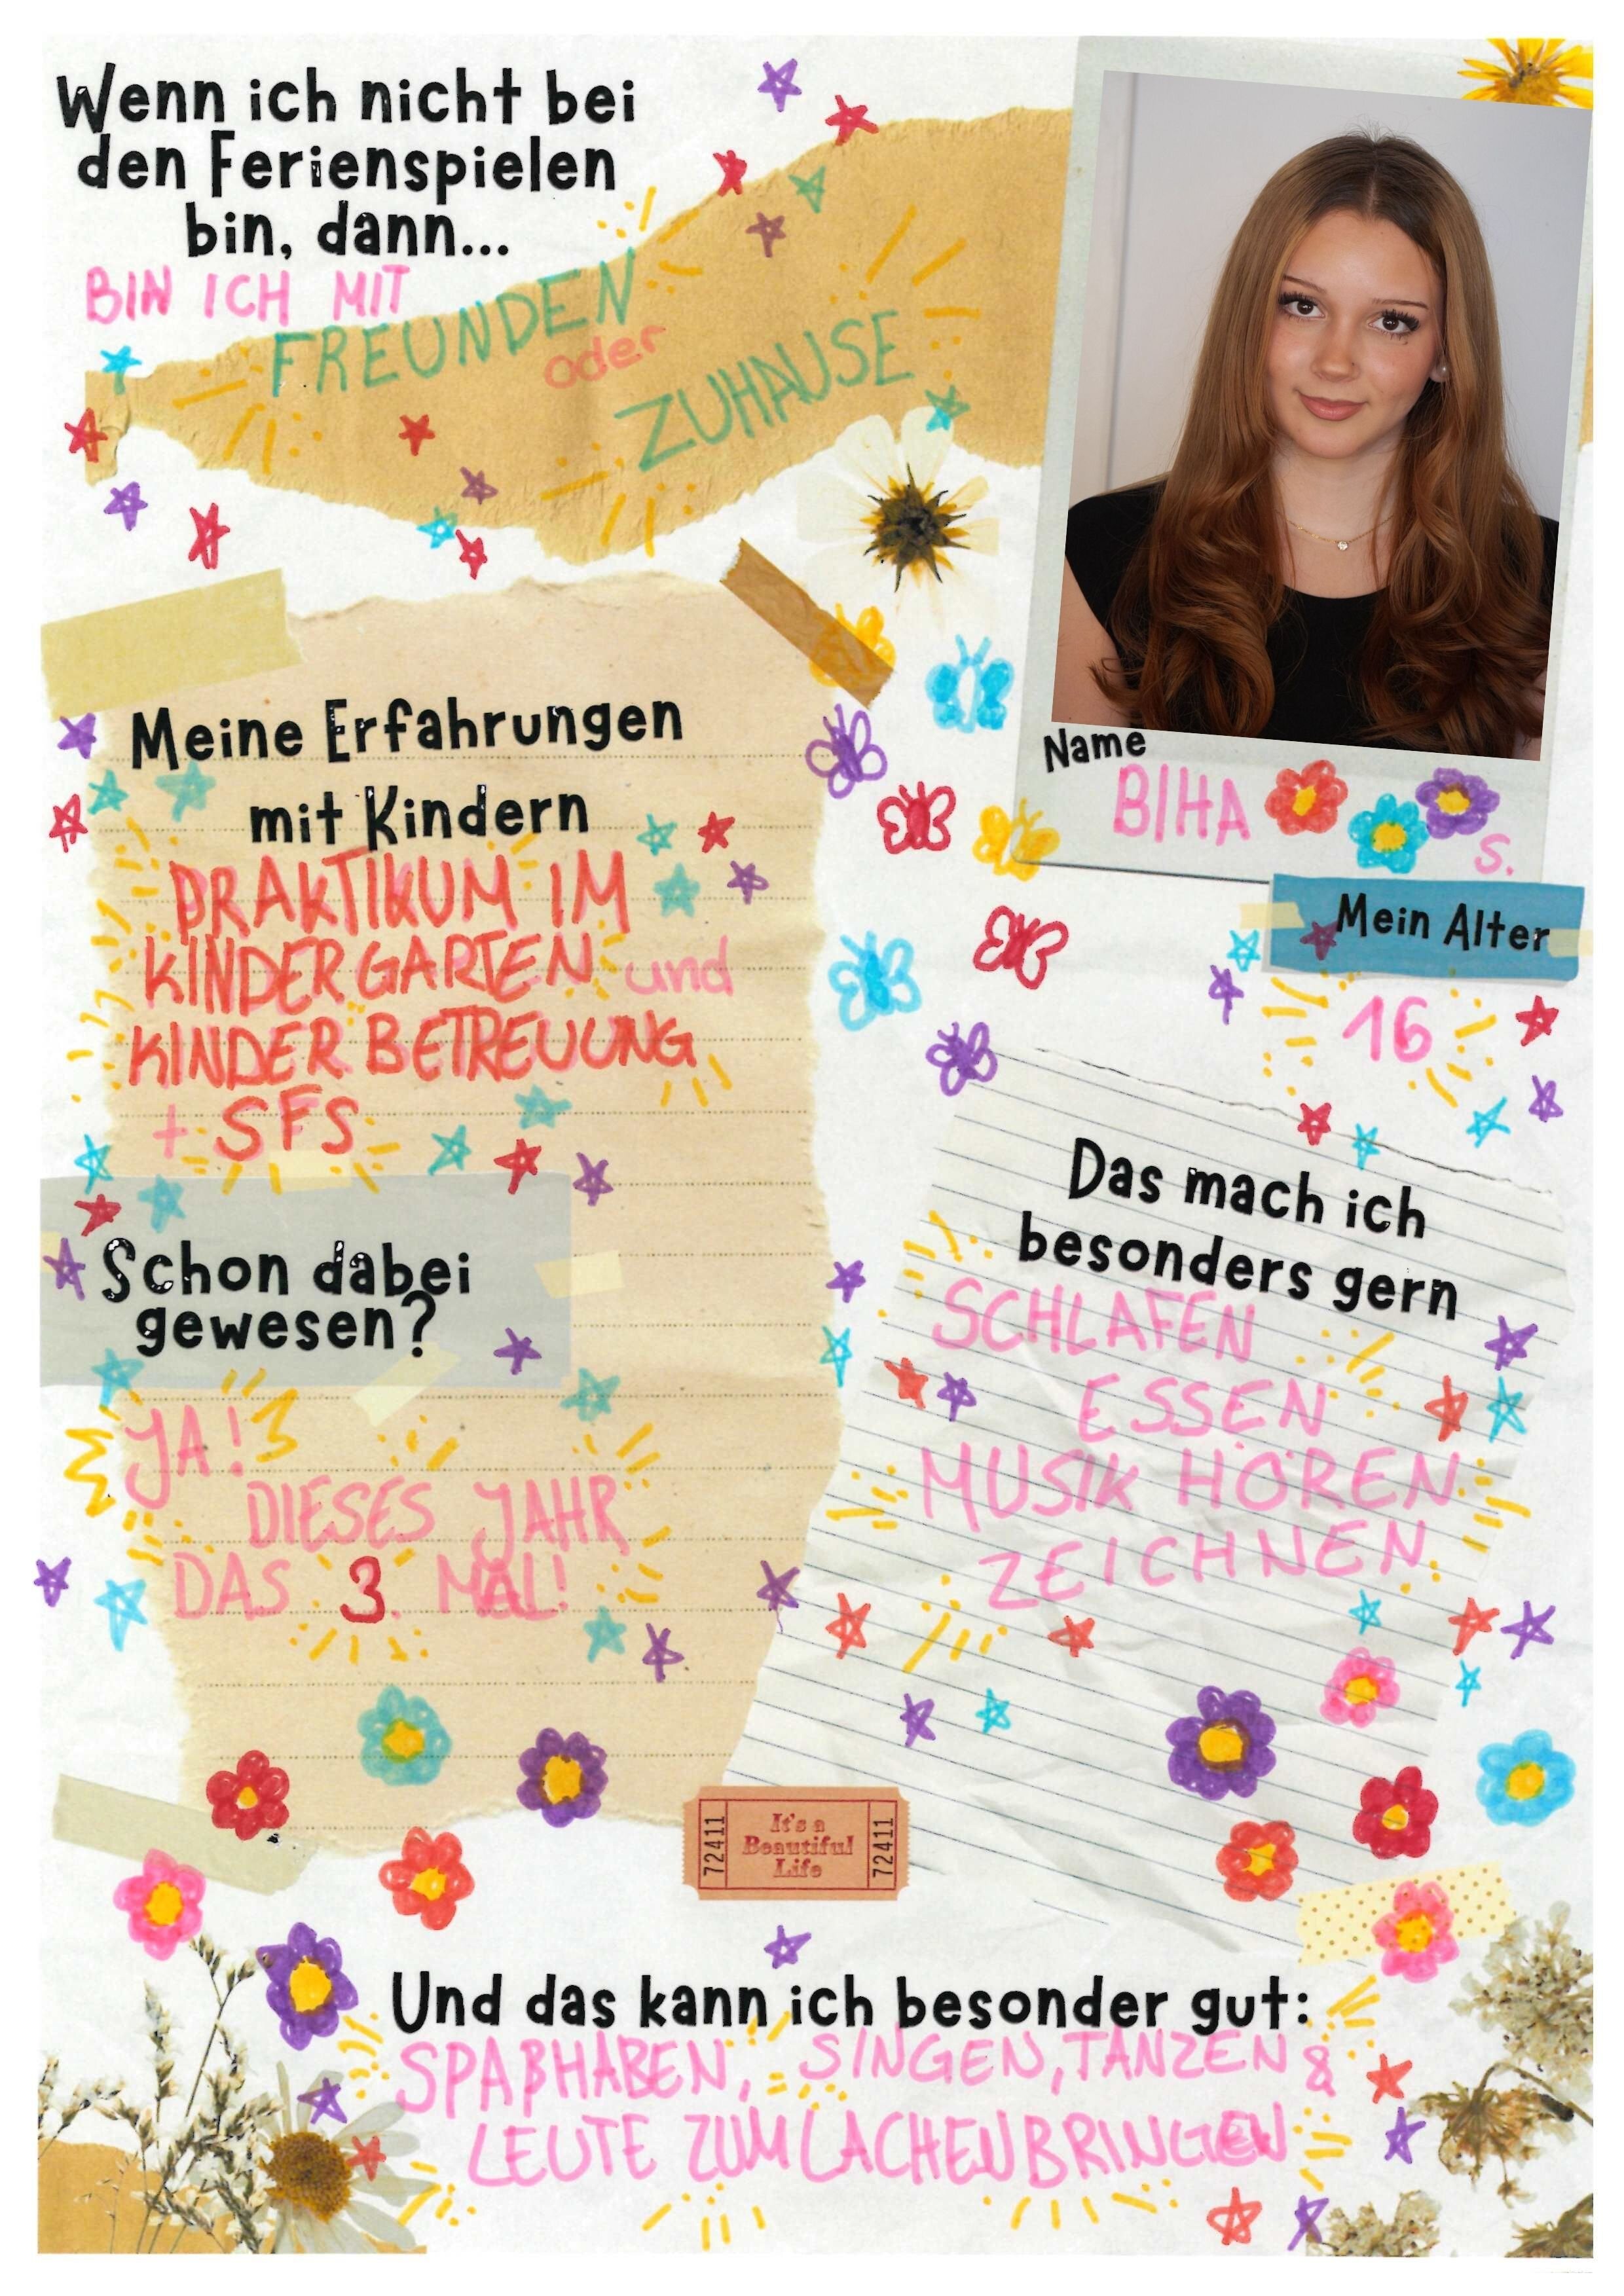 Wenn ich nicht bei
den Ferienspielen
bin, dann...
BIN ICH MIT
FREUNDEN
oder
ZUHAUSE
Name
BIHA
S.
Mein Alter
16
Meine Erfahrungen
mit Kindern
PRAKTIKUM IM
KINDERGARTEN und
KINDER BETREUUNG
+ SFS
Schon dabei
gewesen?
JA!
DIESES JAHR
DAS 3. MAL!
Das mach ich
besonders gern
SCHLAFEN
ESSEN
MUSIK HÖREN
ZEICHNEN
72411
It's a
Beautiful
Life
72411
Und das kann ich besonder gut:
SPAßHABEN, SINGEN, TANZEN &
LEUTE ZUM LACHEN BRINGEN